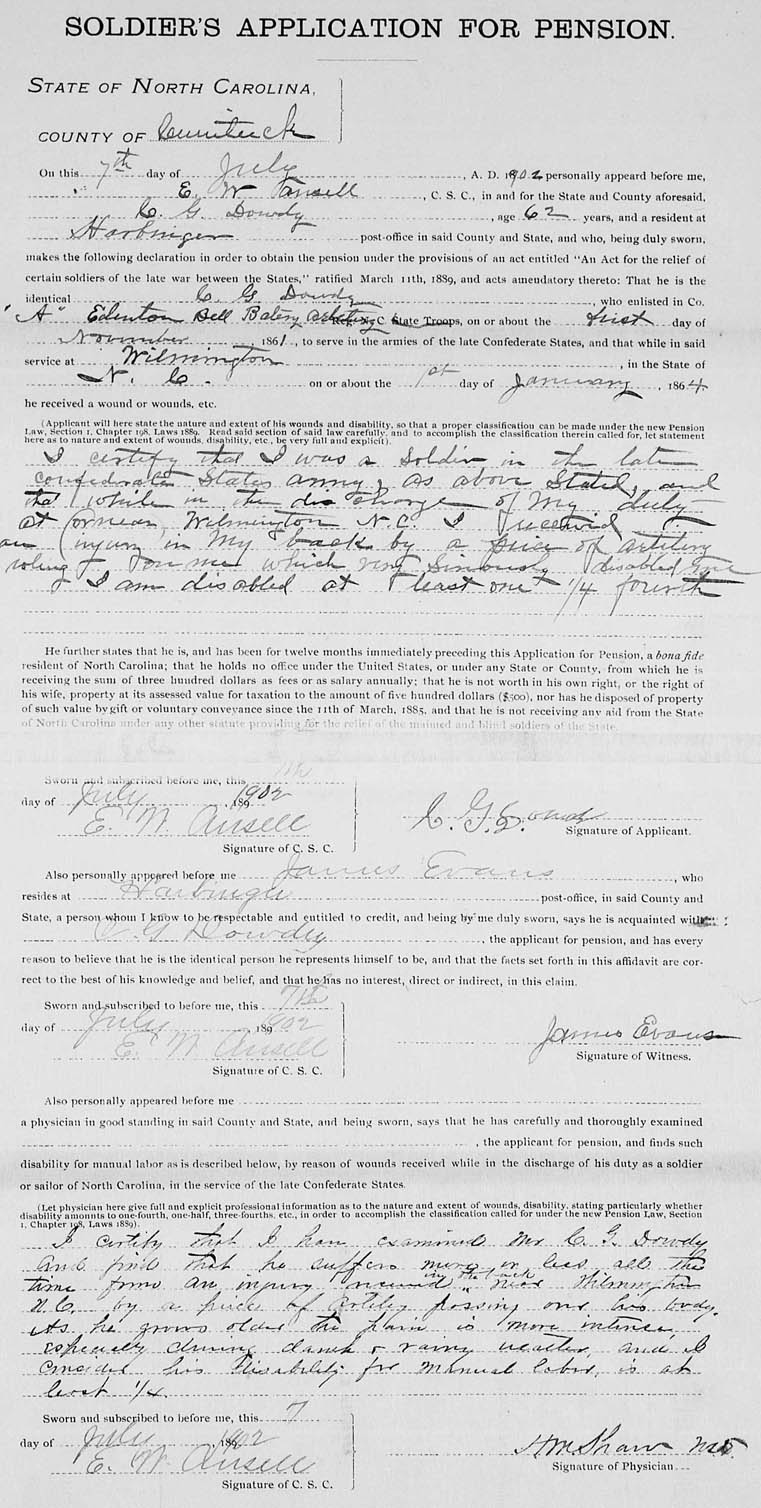 SOLDIER'S APPLICATION FOR PENSION.
STATE OF NORTH CAROLINA,
COUNTY OF Currituck
On this 7th day of July , A. D. 1902 personally appeared before me,
E. W. Ansell , C. S. C., in and for the State and County aforesaid,
C. G. Dowdy , age 62 years, and a resident at
Harbinger post-office in said County and State, and who, being duly sworn,
makes the following declaration in order to obtain the pension under the provisions of an act entitled "An Act for the relief of
certain soldiers of the late war between the States," ratified March 11th, 1889, and acts amendatory thereto: That he is the
identical C. G. Dowdy , who enlisted in Co.
"A" Edenton Bell Batery Artilery Reg. N. C. State Troops, on or about the first day of
November , 1861, to serve in the armies of the late Confederate States, and that while in said
service at Wilmington , in the State of
N. C. on or about the 1st day of January , 1864.
he received a wound or wounds, etc.
(Applicant will here state the nature and extent of his wounds and disability, so that a proper classification can be made under the new Pension
Law, Section 1, Chapter 198, Laws 1889. Read said section of said law carefully, and to accomplish the classification therein called for, let statement
here as to nature and extent of wounds, disability, etc., be very full and explicit).
I certify that I was a Soldier in the late
confederate States army, as above Stated, and
that while in the discharge of my duty
at or near Wilmington N.C. I received
an injury in my back by a piece of artilery
roling on me which very Siriously disabled me
I am disabled at least one 1/4 fourth
He further states that he is, and has been for twelve months immediately preceding this Application for Pension, a bona fide
resident of North Carolina; that he holds no office under the United States, or under any State or County, from which he is
receiving the sum of three hundred dollars as fees or as salary annually; that he is not worth in his own right, or the right of
his wife, property at its assessed value for taxation to the amount of five hundred dollars ($500), nor has he disposed of property
of such value by gift or voluntary conveyance since the 11th of March, 1885, and that he is not receiving any aid from the State
of North Carolina under any other statute providing for the relief of the maimed and blind soldiers of the State.
Sworn and subscribed before me, this 7th
day of July , 189 1902
E. W. Ansell
Signature of C. S. C.
C. G. Dowdy
Signature of Applicant.
Also personally appeared before me James Evans , who
resides at Harbinger post-office, in said County and
State, a person whom I know to be respectable and entitled to credit, and being by me duly sworn, says he is acquainted with
C. G. Dowdy , the applicant for pension, and has every
reason to believe that he is the identical person he represents himself to be, and that the facts set forth in this affidavit are cor-
rect to the best of his knowledge and belief, and that he has no interest, direct or indirect, in this claim.
Sworn and subscribed to before me, this 7th
day of July , 189 1902
E. W. Ansell
Signature of C. S. C.
James Evans
Signature of Witness.
Also personally appeared before me
a physician in good standing in said County and State, and being sworn, says that he has carefully and thoroughly examined
, the applicant for pension, and finds such
disability for manual labor as is described below, by reason of wounds received while in the discharge of his duty as a soldier
or sailor of North Carolina, in the service of the late Confederate States.
(Let physician here give full and explicit professional information as to the nature and extent of wounds, disability, stating particularly whether
disability amounts to one-fourth, one-half, three-fourths, etc., in order to accomplish the classification called for under the new Pension Law, Section
1, Chapter 198, Laws 1889).
I certify that I have examined Mr. C. G. Dowdy
and find that he suffers more or less all the
time from an injury received in the back near Wilmington
N.C. by a piece of artilery passing over his body.
As he grows older the pain is more intense,
especially during damp & rainy weather, and I
consider his disability for manual labor, is at
least 1/4.
Sworn and subscribed to before me, this 7
day of July , 189 1902
E. W. Ansell
Signature of C. S. C.
H M Shaw M.D.
Signature of Physician